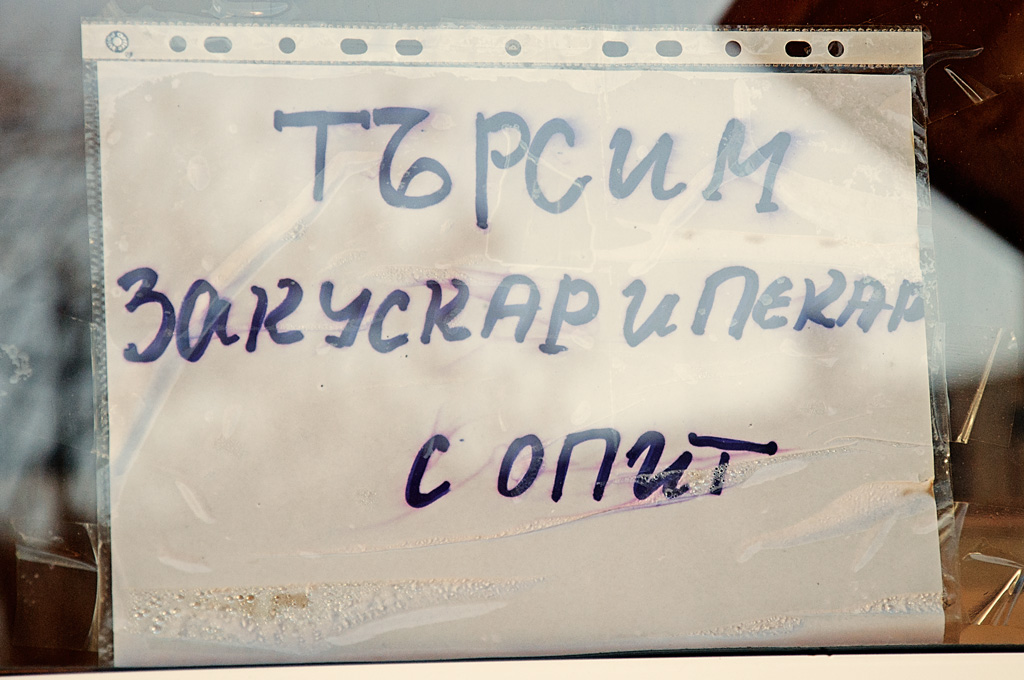 ТЪРСИМ
ЗАКУСКАР И ПЕКАР
С ОПИТ